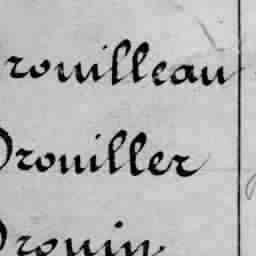 rouilleau
Drouiller
Drouin